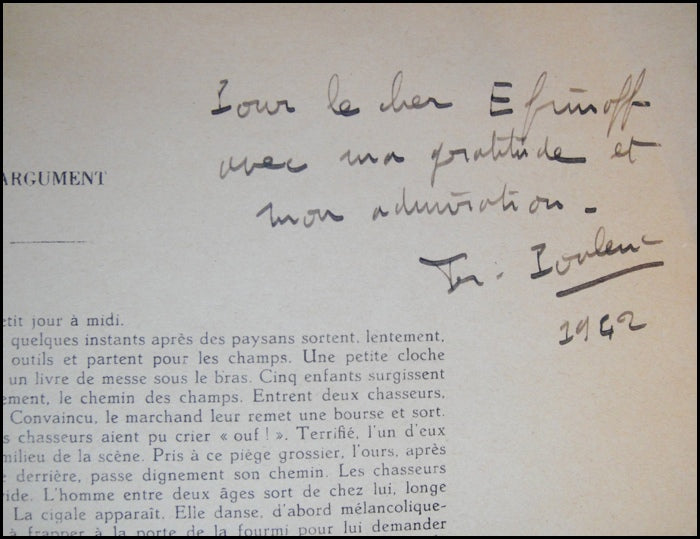 Pour le cher Efimoff
avec ma gratitude et
mon admiration.
Fr. Poulenc
1942
ARGUMENT
etit jour à midi.
quelques instants après des paysans sortent, lentement,
outils et partent pour les champs. Une petite cloche
un livre de messe sous le bras. Cinq enfants surgissent
ement, le chemin des champs. Entrent deux chasseurs.
Convaincu, le marchand leur remet une bourse et sort.
s chasseurs aient pu crier « ouf ! ». Terrifié, l'un d'eux
milieu de la scène. Pris à ce piège grossier, l'ours, après
e derrière, passe dignement son chemin. Les chasseurs
ride. L'homme entre deux âges sort de chez lui, longe
La cigale apparaît. Elle danse, d'abord mélancolique-
à frapper à la porte de la fourmi pour lui demander